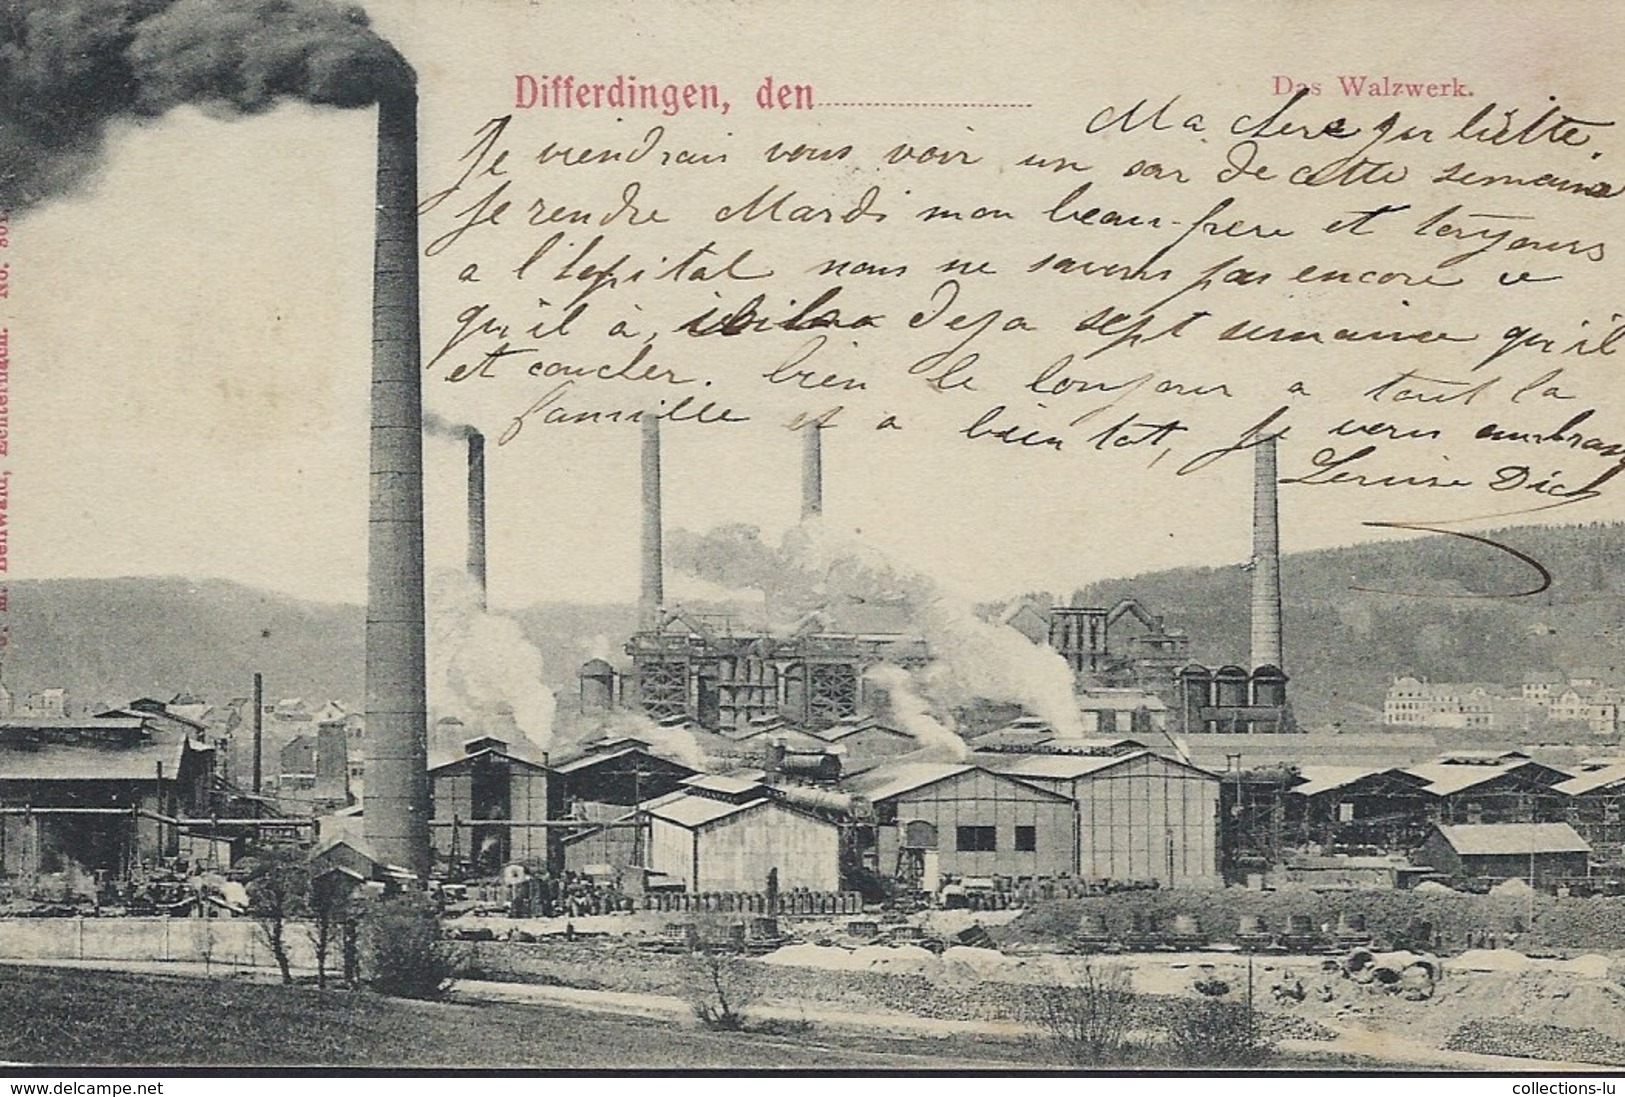 Differdingen, den
Das Walzwerk.
Ma chere Juliette,
Je viendrais vous voir un soir de cette semaine
Je rendre Mardi mon beau-frere et toujours
a l'hopital nous ne savons pas encore ce
qu'il à, deja sept semaine qu'il
et coucher. bien le bonjour a tout la
famille et a bien tot, Je vous embrasse
Louise Dich
J. M. Bellwald, Echternach. No. 301.
www.delcampe.net
collections-lu